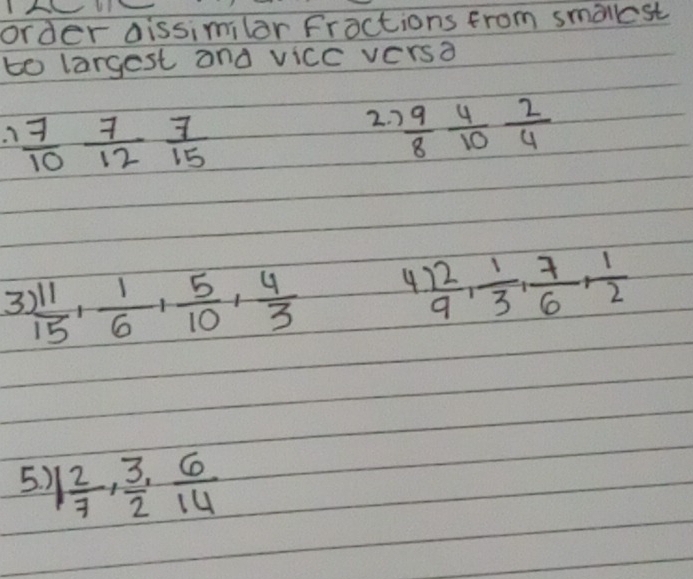 order dissimilar Fractions from smallest
to largest and vice versa
.) 7/10 7/12 7/15
2.) 9/8 4/10 2/4
3) 11/15, 1/6, 5/10, 4/3
4) 2/9, 1/3, 7/6, 1/2
5.) 1 2/7, 3/2, 6/14